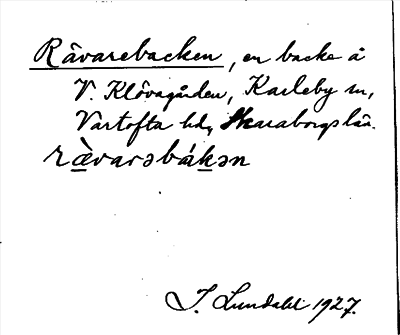 Råvarebacken, en backe å
V. Klövagården, Karleby sn,
Vartofta hd, Skaraborgs län.
rävarəbákən
J. Lundahl 1927.